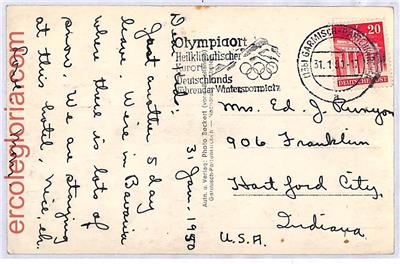 ercolegloria.com
Dear Folks;
31 Jan. 1950
Just another 5 day
leave. We're in Bavaria
where there is lots of
snow. We are staying
at this hotel, nice, eh.
Olympiaort
Heilklimatischer
Kurort
Deutschlands
führender Wintersportplatz
(13b) GARMISCH-PARTENK
31.1.50
20
DEUTSCHE POST
Aufn. u. Verlag: Photo Beckert
Garmisch-Partenkirchen
Mrs. Ed. J. Runyon
906 Franklin
Hartford City,
Indiana
U.S.A.